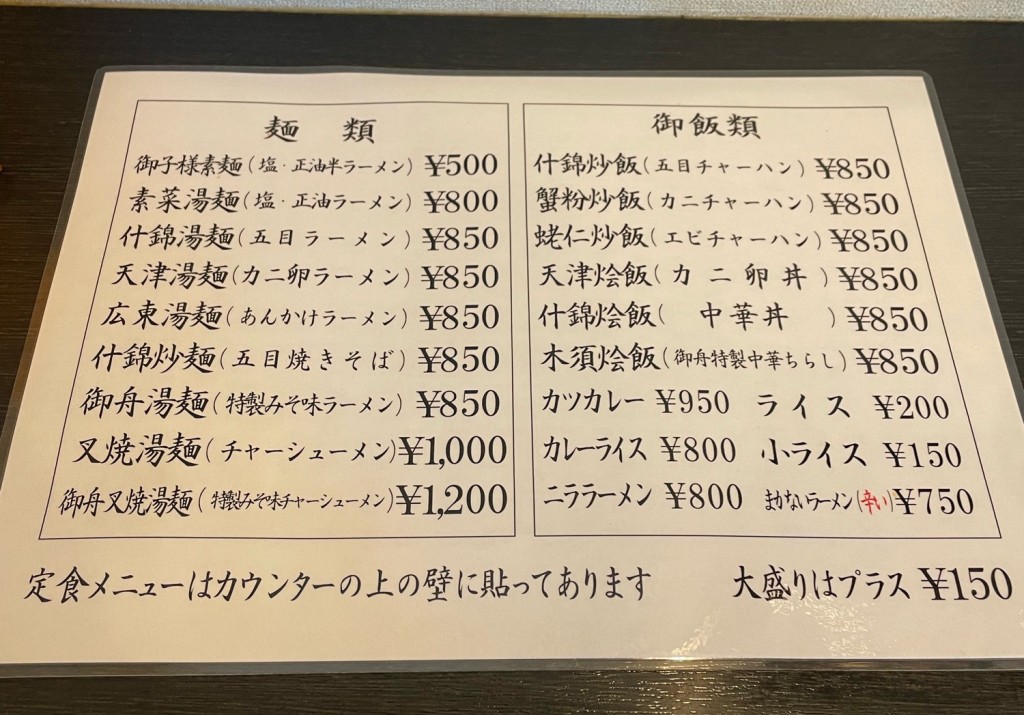 麺 類
御子様素麺(塩・正油半ラーメン) ¥500
素菜湯麺(塩・正油ラーメン) ¥800
什錦湯麺(五目ラーメン) ¥850
天津湯麺(カニ卵ラーメン) ¥850
広東湯麺(あんかけラーメン) ¥850
什錦炒麺(五目焼きそば) ¥850
御舟湯麺(特製みそ味ラーメン) ¥850
叉焼湯麺(チャーシューメン) ¥1,000
御舟叉焼湯麺(特製みそ味チャーシューメン) ¥1,200
御飯類
什錦炒飯(五目チャーハン) ¥850
蟹粉炒飯(カニチャーハン) ¥850
蛯仁炒飯(エビチャーハン) ¥850
天津烩飯(カニ卵丼) ¥850
什錦烩飯(中華丼) ¥850
木須烩飯(御舟特製中華ちらし) ¥850
カツカレー ¥950 ライス ¥200
カレーライス ¥800 小ライス ¥150
ニララーメン ¥800 まかないラーメン(辛い) ¥750
定食メニューはカウンターの上の壁に貼ってあります
大盛りはプラス ¥150